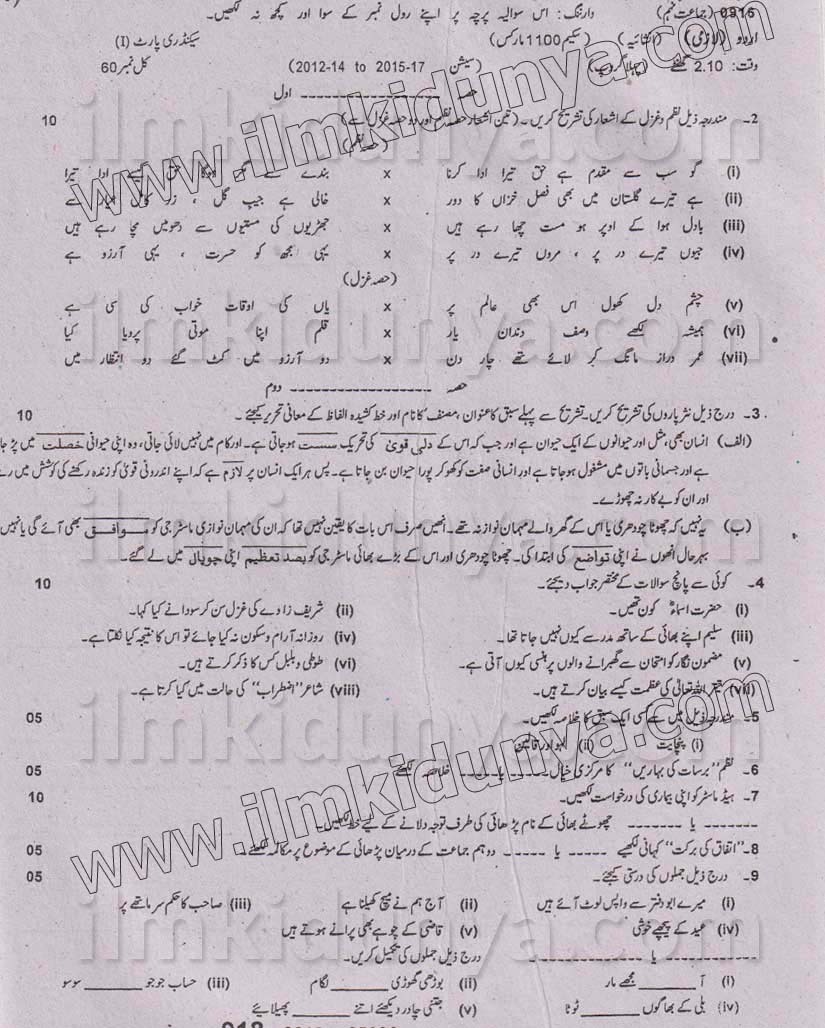 0916 (جماعت نہم) وارننگ: اس سوالیہ پرچہ پر اپنے رول نمبر کے سوا اور کچھ نہ لکھیں۔
اردو (لازمی) (انشائیہ) (سکیم 1100 مارکس) سیکنڈری پارٹ (I)
وقت: 2.10 گھنٹے (پہلا گروپ) (سیشن 2012-14 to 2015-17) کل نمبر 60
حصہ ---------- اول
2۔ مندرجہ ذیل نظم و غزل کے اشعار کی تشریح کریں۔ (تین اشعار حصہ نظم اور دو حصہ غزل سے) 10
(حصہ نظم)
(i) گو سب سے مقدم ہے حق تیرا ادا کرنا x بندے سے ادا تیرا
(ii) ہے تیرے گلستان میں بھی فصل خزاں کا دور x خالی ہے جیب گل ، زر کامل سے
(iii) بادل ہوا کے اوپر ہو مست چھا رہے ہیں x جھڑیوں کی مستیوں سے دھومیں مچا رہے ہیں
(iv) جیوں تیرے در پر ، مروں تیرے در پر x یہی مجھ کو حسرت ، یہی آرزو ہے
(حصہ غزل)
(v) چشم دل کھول اس بھی عالم پر x یاں کی اوقات خواب کی سی ہے
(vi) ہمیشہ لکھے وصف دندان یار x قلم اپنا موتی پرویا کیا
(vii) عمر دراز مانگ کر لائے تھے چار دن x دو آرزو میں کٹ گئے دو انتظار میں
حصہ ---------- دوم
3۔ درج ذیل نثر پاروں کی تشریح کریں۔ تشریح سے پہلے سبق کا عنوان، مصنف کا نام اور خط کشیدہ الفاظ کے معانی تحریر کیجئے۔ 10
(الف) انسان بھی، مثل اور حیوانوں کے ایک حیوان ہے اور جب کہ اس کے دلی قویٰ کی تحریک سست ہو جاتی ہے۔ اور کام میں نہیں لائی جاتی، وہ اپنی حیوانی خصلت میں پڑ جاتا
ہے اور جسمانی باتوں میں مشغول ہو جاتا ہے اور انسانی صفت کو کھو کر پورا حیوان بن جاتا ہے۔ پس ہر ایک انسان پر لازم ہے کہ اپنے اندرونی قویٰ کو زندہ رکھنے کی کوشش میں رہے
اور ان کو بے کار نہ چھوڑے۔
(ب) یہ نہیں کہ چھوٹا چودھری یا اس کے گھر والے مہمان نواز نہ تھے۔ انھیں صرف اس بات کا یقین نہیں تھا کہ ان کی مہمان نوازی ماسٹر جی کو موافق بھی آئے گی یا نہیں
بہرحال انھوں نے اپنی تواضع کی ابتدا کی۔ چھوٹا چودھری اور اس کے بڑے بھائی ماسٹر جی کو بصد تعظیم اپنی چوپال میں لے گئے۔
4۔ کوئی سے پانچ سوالات کے مختصر جواب دیجئے۔ 10
(i) حضرت اسماءؓ کون تھیں۔ (ii) شریف زادے کی غزل سن کر سودا نے کیا کہا۔
(iii) سلیم اپنے بھائی کے ساتھ مدرسے کیوں نہیں جاتا تھا۔ (iv) روزانہ آرام و سکون نہ کیا جائے تو اس کا نتیجہ کیا نکلتا ہے۔
(v) مضمون نگار کو امتحان سے گھبرانے والوں پر ہنسی کیوں آتی ہے۔ (vi) طوطی و بلبل کس کا ذکر کرتے ہیں۔
(vii) اللہ تعالیٰ کی عظمت کیسے بیان کرتے ہیں۔ (viii) شاعر "اضطراب" کی حالت میں کیا کرتا ہے۔
5۔ مندرجہ ذیل میں سے کسی ایک سبق کا خلاصہ لکھیں۔ 05
(i) پنچایت (ii) لہو اور قالین
6۔ نظم "برسات کی بہاریں" کا مرکزی خیال ----- یا ----- خلاصہ لکھئے 05
7۔ ہیڈ ماسٹر کو اپنی بیماری کی درخواست لکھیں۔ 10
------- یا ------- چھوٹے بھائی کے نام پڑھائی کی طرف توجہ دلانے کے لیے خط لکھیں۔
8۔ "اتفاق کی برکت" کہانی لکھیے ----- یا ----- دو ہم جماعت کے درمیان پڑھائی کے موضوع پر مکالمہ لکھئے۔ 05
9۔ درج ذیل جملوں کی درستی کیجئے۔ 05
(i) میرے ابو دفتر سے واپس لوٹ آئے ہیں (ii) آج ہم نے میچ کھیلنا ہے (iii) صاحب کا حکم سر ماتھے پر
(iv) عید کے پیچھے خوشی (v) قاضی کے چوہے بھی پرانے ہوتے ہیں
---------- یا ---------- درج ذیل جملوں کی تکمیل کریں۔
(i) آ ______ مجھے مار (ii) بوڑھی گھوڑی ______ لگام (iii) حساب جو جو ______ سو سو
(iv) بلی کے بھاگوں ______ ٹوٹا (v) جتنی چادر دیکھئے اتنے ______ پھیلائیے
www.ilmkidunya.com
www.ilmkidunya.com
ilmkidunya.com
ilmkidunya.com
ilmkidunya.com
ilmkidunya.com
ilmkidunya.com